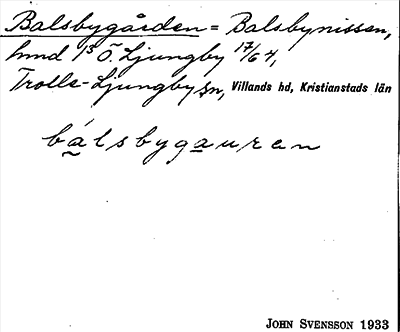 Balsbygården = Balsbynissen,
hmd 1⁵ Ö. Ljungby 17/64,
Trolle-Ljungby sn, Villands hd, Kristianstads län
bálsbygauren
JOHN SVENSSON 1933